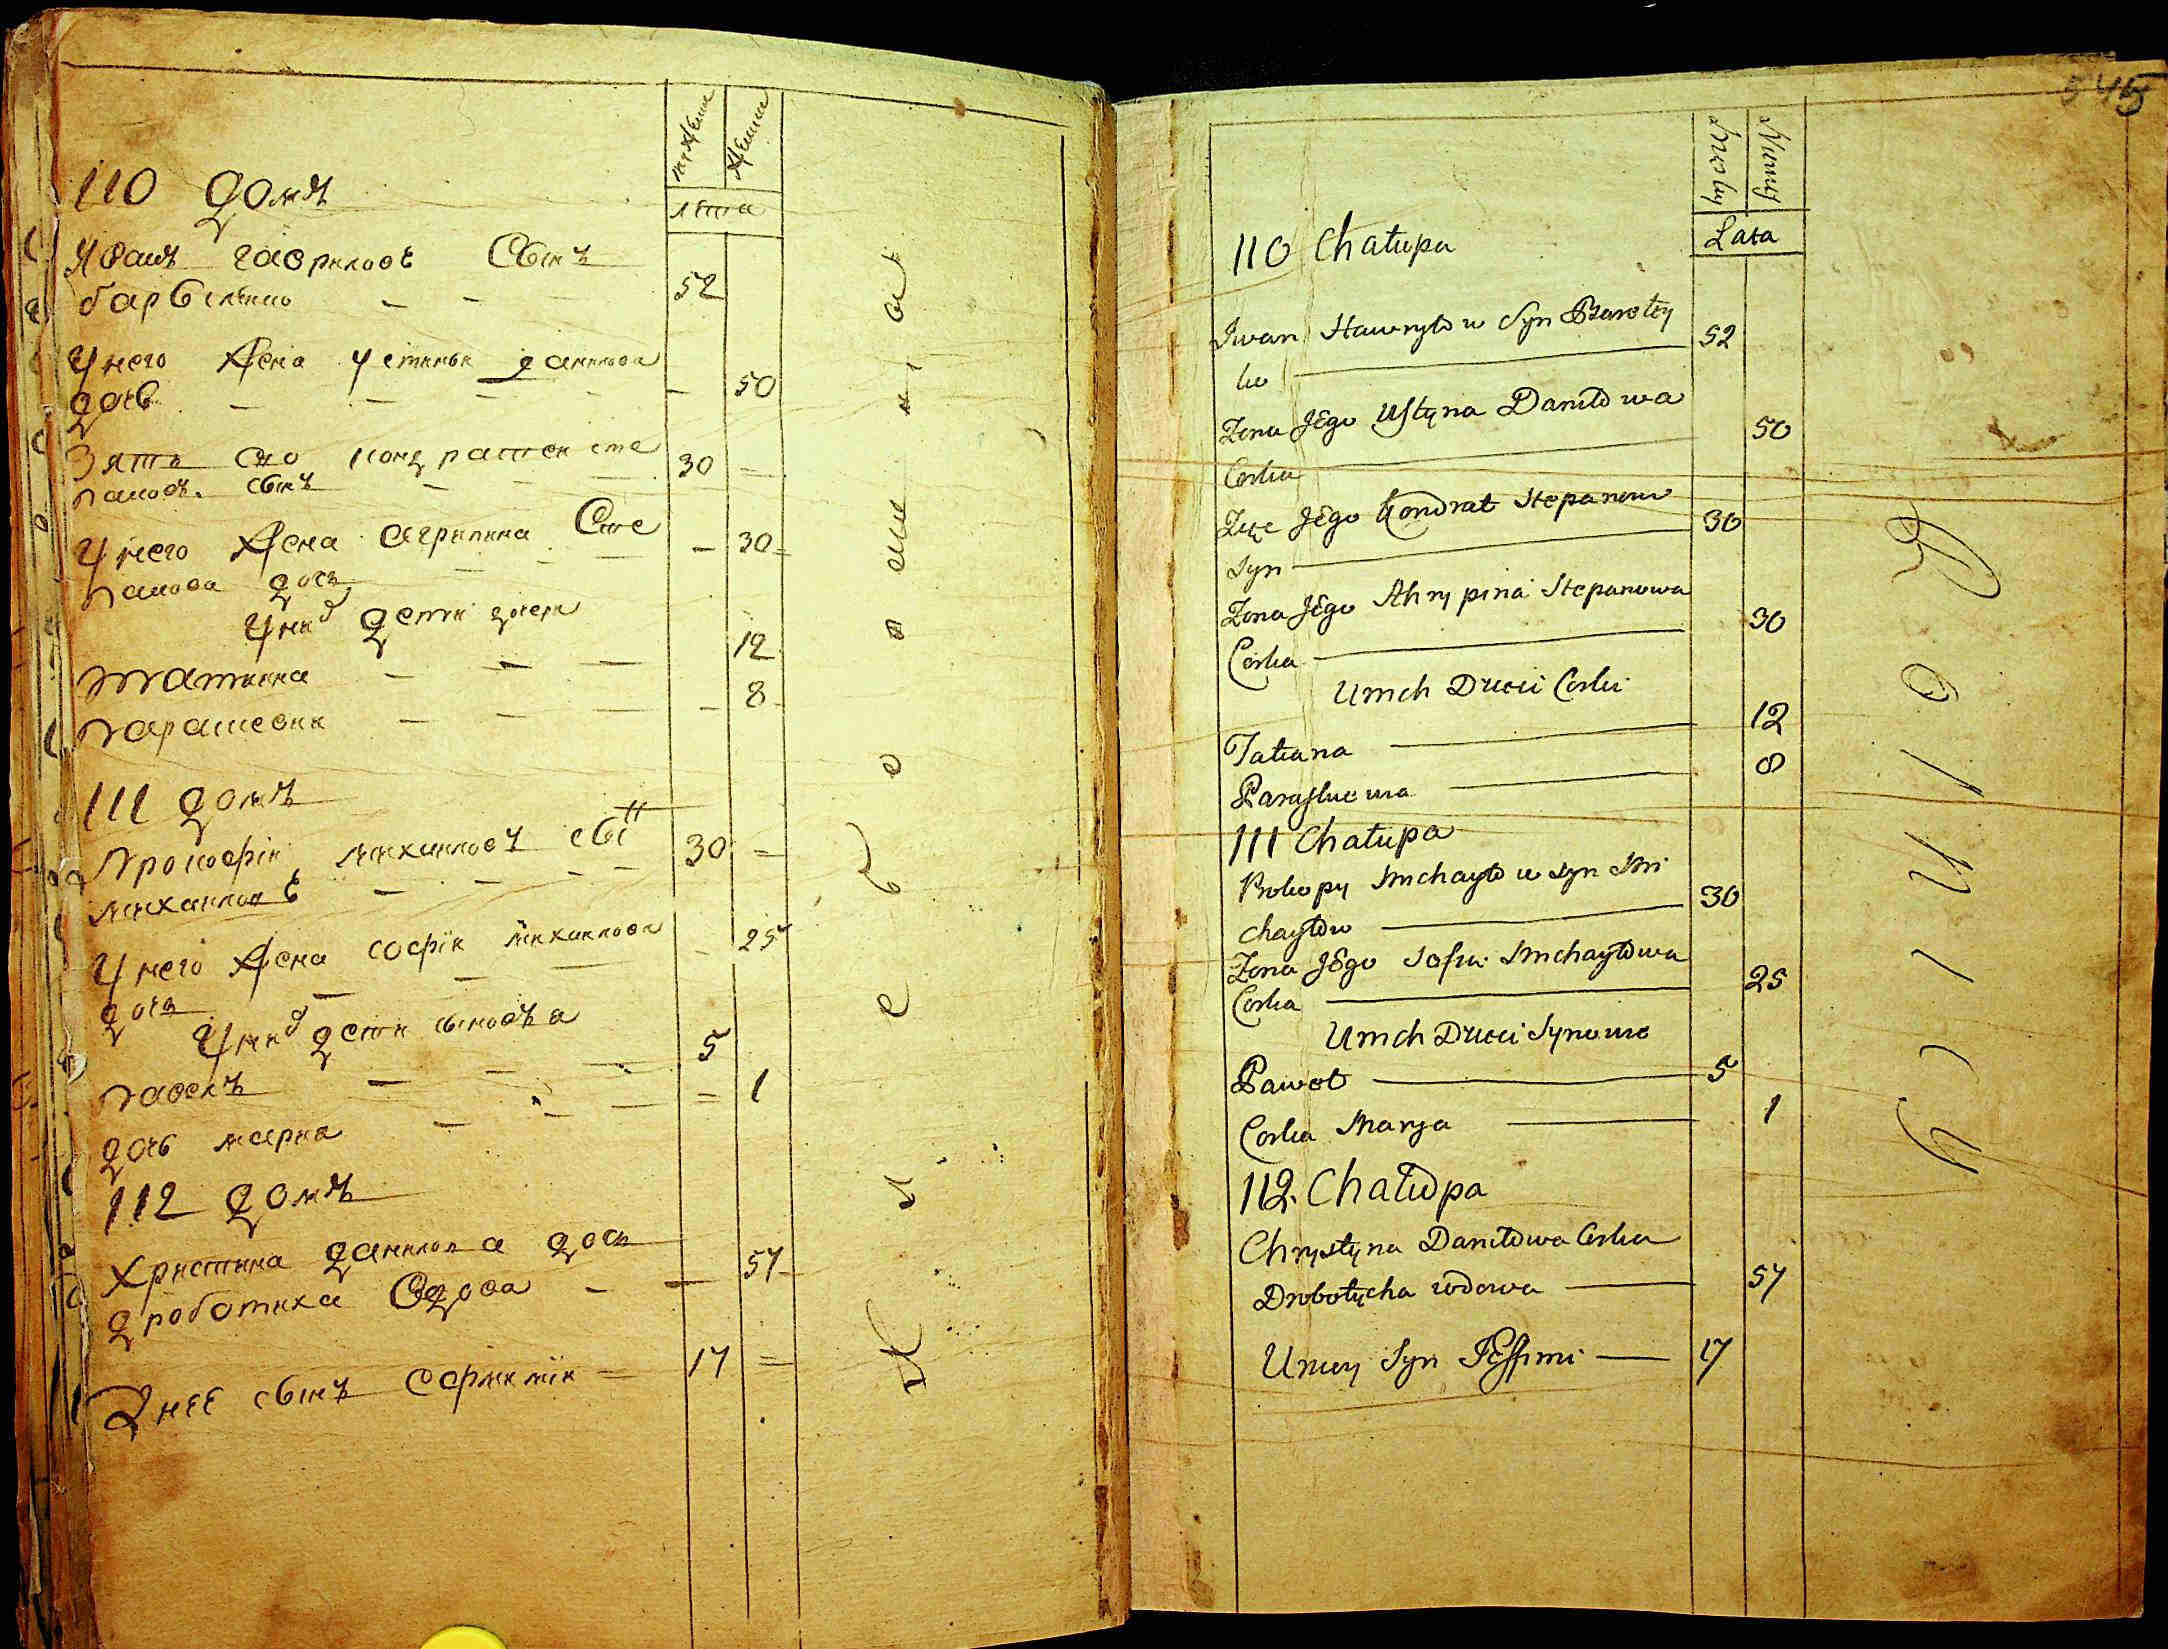 мужеска
женска
лѣта
110 домъ
Иванъ гавриловъ Сынъ
барвѣнко 52
У него жена устинья данилова
дочь 50
Зять его кондратей сте
пановъ сынъ 30
У него жена агрипина Сте
панова дочь 30
У них дети дочери
татиана 12
парасковия 8
111 домъ
Прокофiи михаиловъ сынъ 30
михаиловъ
У него жена софiя михаилова 25
дочь
У них дети сыновья
павелъ 5
дочь мария 1
112 домъ
Христина данилова дочь
дроботиха вдова 57
У нее сынъ 17
545
Męscy
Żenscy
Lata
110 Chałupa
Iwan Hawryłow Syn
ko 52
Zona Jego Ustyna Daniłowa
Corka 50
Zięc Jego Kondrat Stepanow
Syn 30
Zona Jego Ahrypina Stepanowa
Corka 30
U nich Dzieci Corki
Tatiana 12
Paraskiewia 8
111 Chałupa
Prokopy Michayłow Syn Mi
chayłow 30
Zona Jego Sofia Michayłowa
Corka 25
U nich Dzieci Synowie
Paweł 5
Corka Marya 1
112. Chałupa
Chrystyna Daniłowa Corka
Drobotycha wdowa 57
U niey Syn 17
Rolnicy